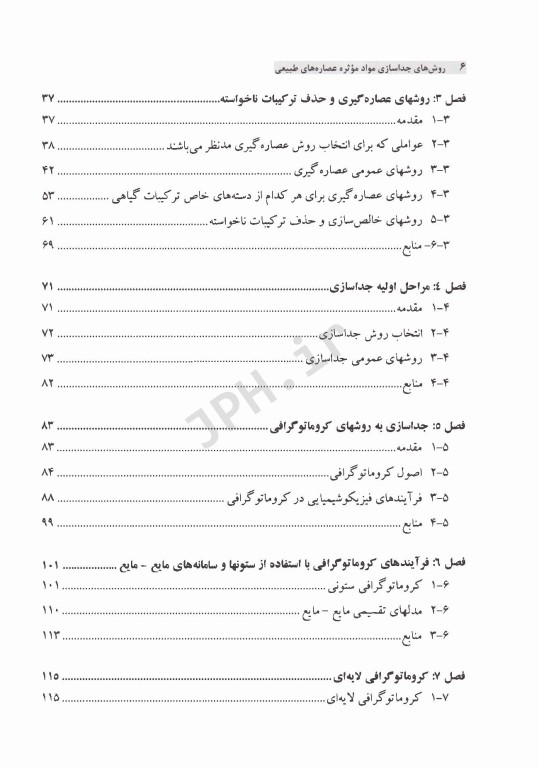 ۶ روش‌های جداسازی مواد مؤثره عصاره‌های طبیعی
فصل ۳: روشهای عصاره‌گیری و حذف ترکیبات ناخواسته ........ ۳۷
۳-۱ مقدمه ........ ۳۷
۳-۲ عواملی که برای انتخاب روش عصاره‌گیری مدنظر می‌باشند ........ ۳۸
۳-۳ روشهای عمومی عصاره‌گیری ........ ۴۲
۳-۴ روشهای عصاره‌گیری برای هر کدام از دسته‌های خاص ترکیبات گیاهی ........ ۵۳
۳-۵ روشهای خالص‌سازی و حذف ترکیبات ناخواسته ........ ۶۱
۳-۶- منابع ........ ۶۹
فصل ۴: مراحل اولیه جداسازی ........ ۷۱
۴-۱ مقدمه ........ ۷۱
۴-۲ انتخاب روش جداسازی ........ ۷۲
۴-۳ روشهای عمومی جداسازی ........ ۷۳
۴-۴ منابع ........ ۸۲
فصل ۵: جداسازی به روشهای کروماتوگرافی ........ ۸۳
۵-۱ مقدمه ........ ۸۳
۵-۲ اصول کروماتوگرافی ........ ۸۴
۵-۳ فرآیندهای فیزیکوشیمیایی در کروماتوگرافی ........ ۸۸
۵-۴ منابع ........ ۹۹
فصل ۶: فرآیندهای کروماتوگرافی با استفاده از ستونها و سامانه‌های مایع – مایع ........ ۱۰۱
۶-۱ کروماتوگرافی ستونی ........ ۱۰۱
۶-۲ مدلهای تقسیمی مایع – مایع ........ ۱۱۰
۶-۳ منابع ........ ۱۱۳
فصل ۷: کروماتوگرافی لایه‌ای ........ ۱۱۵
۷-۱ کروماتوگرافی لایه‌ای ........ ۱۱۵
JPH.ir